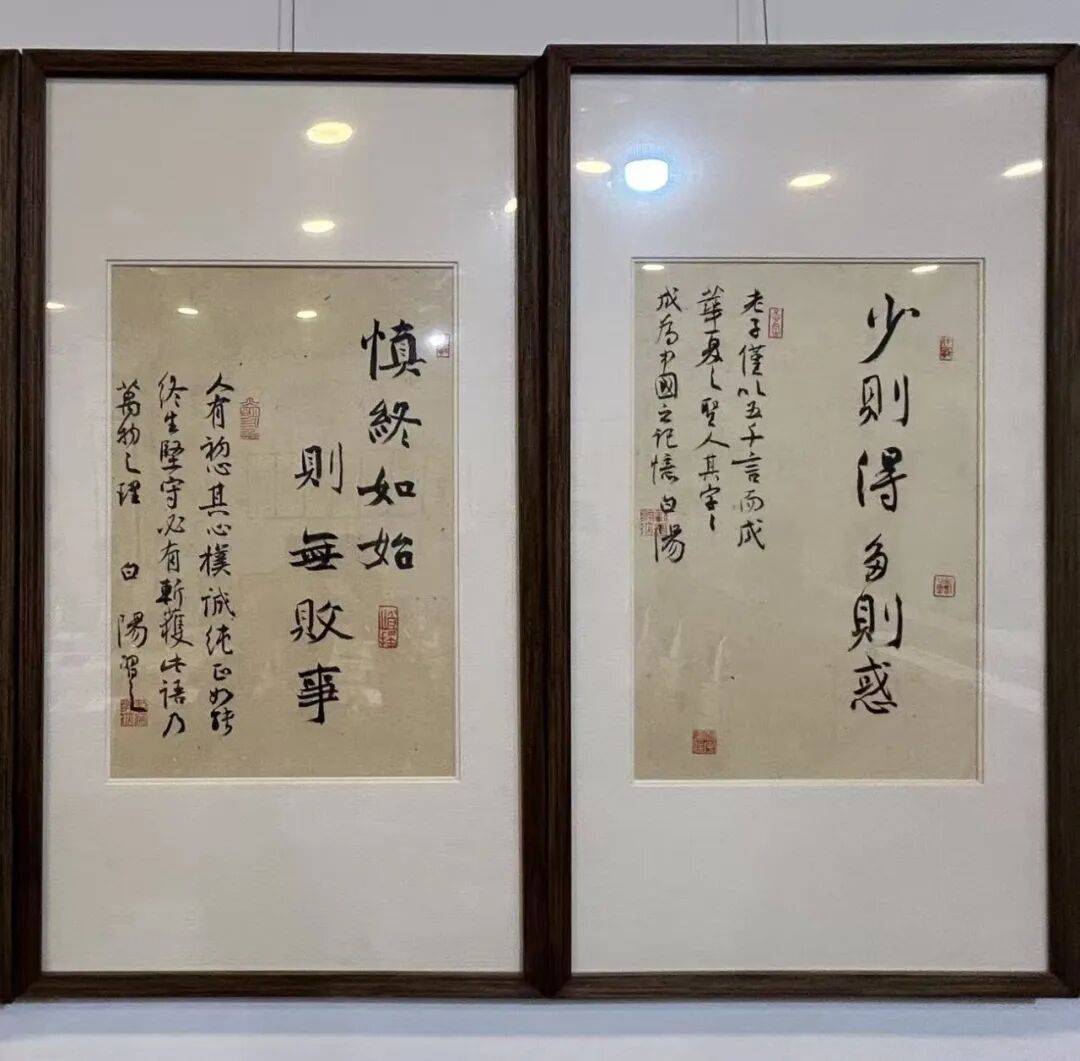 少則得多則惑
老子僅以五千言而成
華夏之聖人其字〻
成為中國之記憶 白陽
慎終如始
則無敗事
人有初心其心樸誠純正如能
終生堅守必有斬獲此語乃
萬物之理 白陽習之